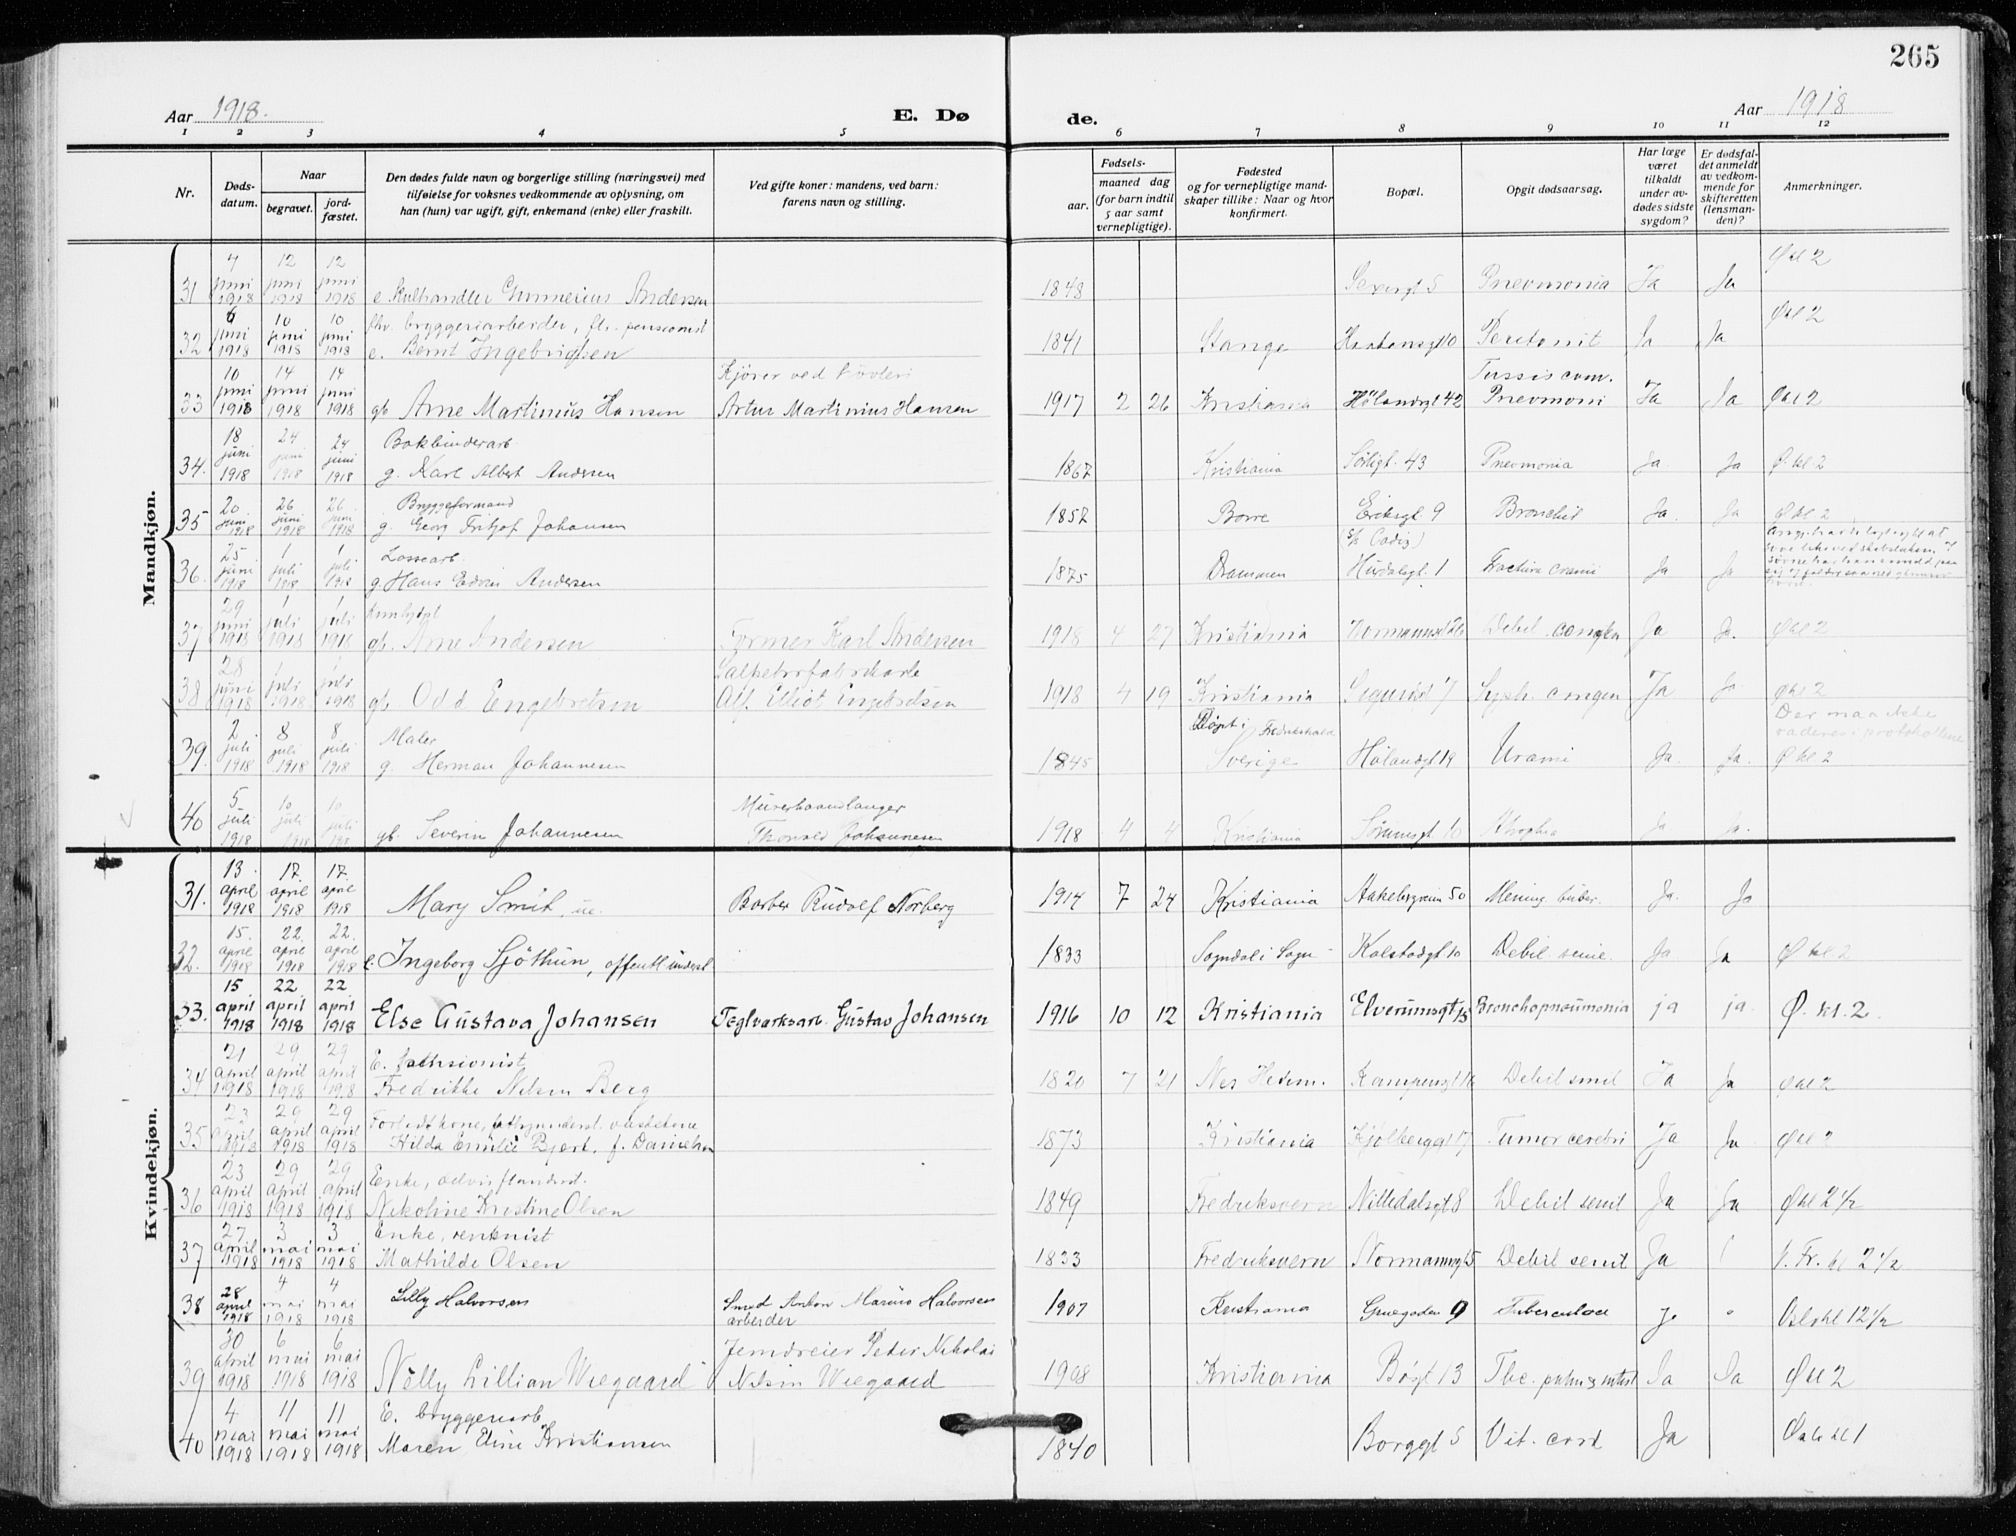 265
Aar 1918.
E. Dø
de.
Aar 1918
1 2 3 4 5 6 7 8 9 10 11 12
Nr.
Døds-
datum.
Naar
begravet.
jord-
fæstet.
Den dødes fulde navn og borgerlige stilling (næringsvei) med
tilføielse for voksnes vedkommende av oplysning, om
han (hun) var ugift, gift, enkemand (enke) eller fraskilt.
Ved gifte koner: mandens, ved barn:
farens navn og stilling.
Fødsels-
aar.
maaned dag
(for barn indtil
5 aar samt
vernepligtige).
Fødested
og for vernepligtige mand-
skaper tillike: Naar og hvor
konfirmert.
Bopæl.
Opgit dødsaarsag.
Har læge
været
tilkaldt
under av-
dødes sidste
sygdom?
Er dødsfal-
det anmeldt
av vedkom-
mende for
skifteretten
(lensman-
den)?
Anmerkninger.
Mandkjøn.
31 juni 1918 12 juni 1918 12 juni 1918 e. Kulhandler Gunnerius Andersen 1848 5 Pneumonia Ja Ja Økl 2
32 6 juni 1918 10 juni 1918 10 juni 1918 fhv. bryggeriarbeider,
e. Bernt Ingebrigtsen 1841 Stange 10 Peritonit Ja Ja Økl 2
33 10 juni 1918 14 juni 1918 14 juni 1918 gb. Arne Martinius Hansen Kjører ved
Artur Martinius Hansen 1917 2 26 Kristiania Hølandsgt 42 Tussis conv.
Pneumoni Ja Ja Økl 2
34. 18 juni 1918 24 juni 1918 24 juni 1918 Bokbinderarb.
g. Karl Albert Andersen 1867 Kristiania Sørligt. 43 Pneumonia Ja. Ja Ø. kl 2
35 20 juni 1918 26 juni 1918 26 juni 1918 Bryggeformand
g. Georg Fritjof Johansen 1857 Borre Eriksgt 9 Bronchit Ja. Ja Ø kl 2
36. 25 juni 1918 1 juli 1918 1 juli 1918 Lossearb.
g. Hans Edvin Andersen 1875 Drammen (S/S Cadiz)
Hurdalsgt. 1 Fractura cranii Ja Ja
37 29 juni 1918 1 juli 1918 1 juli 1918
gb. Arne Andersen Former Karl Andersen 1918 4 27 Kristiania Debil. congen Ja Ja. Økl 2
38 28 juni 1918 juli 1918 juli 1918 gb. Odd Engebretsen
Alf. Elliot Engebretsen 1918 4 19 Kristiania 7 Syph. congen Ja Ja Økl 2
39. 2 juli 1918 8 juli 1918 8 juli 1918 Maler
g. Herman Johannesen 1845 Døpt i Fredrikshald
Sverige Hølandsgt 19 Urami Ja. Ja. Der maa ikke
raderes i protokollene
Ø kl 2
40 5 juli 1918 10 juli 1918 10 juli gb. Severin Johannesen Murerhaandlanger
Thorvald Johannesen 1918 4 4 Kristiania Sørumsgt 10 Ja Ja.
Kvindekjøn.
31. 13. april 1918 17. april 1918 17. april 1918 Mary Smit, ue. Barber Rudolf Norberg 1914 7 24 Kristiania 50 Mening. tuber. Ja. Ja
32. 15. april 1918 22. april 1918 22. april 1918 e. Ingeborg Sjøthun, offentl underst. 1833 Sogndal i Sogn Kolstadgt 10 Debil. senil. Ja Ja Ø kl 2
33. 15 april 1918 22 april 1918 22. april 1918 Else Gustava Johansen Teglverksarb. Gustav Johansen 1916 10 12 Kristiania Elverumsgt 15 Bronchopneumonia ja ja. Ø. kl. 2.
34 21 april 1918 29 april 1918 29 april 1918 E.
Fredrikke Nilsen Berg 1820 7 21 Nes Hedm. Kampensgt 16 Debil senil Ja Ja Ø kl 2
35 23 april 1918 29 april 1918 29 april 1918
Hilda Emilie Bjørt. f. Danielsen 1873 Kristiania Kjølberggt 17 Tumor cerebri Ja Ja Ø kl 2
36 23 april 1918 29 april 1918 29 april 1918 Enke,
Nikoline Kristine Olsen 1849 Fredriksvern Nittedalsgt 8 Debil senil Ja Ja Ø kl 2 1/2
37 27 april 1918 3 mai 1918 3 mai 1918 Enke, rentenist
Mathilde Olsen 1833 Fredriksvern Normannsgt 5 Debil senil Ja V. Fr. kl 2 1/2
38 28 april 1918 4 mai 1918 4 mai 1918 Lilly Halvorsen Smed Anton Marius Halvorsen
arbeider 1907 Kristiania Gruegaden 9 Tuberculose Ja Oslo kl 12 1/2
39 30 april 1918 6 mai 1918 6 mai 1918 Nelly Lillian Wiegaard Jerndreier Peder Nikolai
Nilsen Wiegaard 1908 Kristiania Bøgt 13 Tbc. pulm & intest Ja Ja Ø kl 2
40 4 mai 1918 11 mai 1918 11 mai 1918 E. bryggeriarb.
Maren Eline Kristiansen 1840 Borggt 5 Vit. cord Ja Oslo kl 1